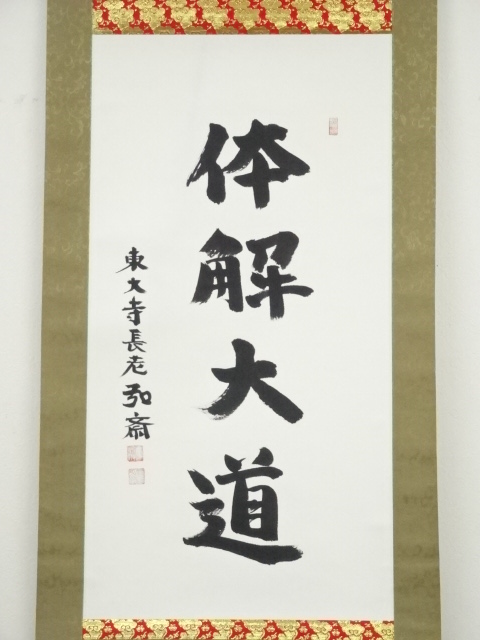 体解大道
東大寺長老弘斎